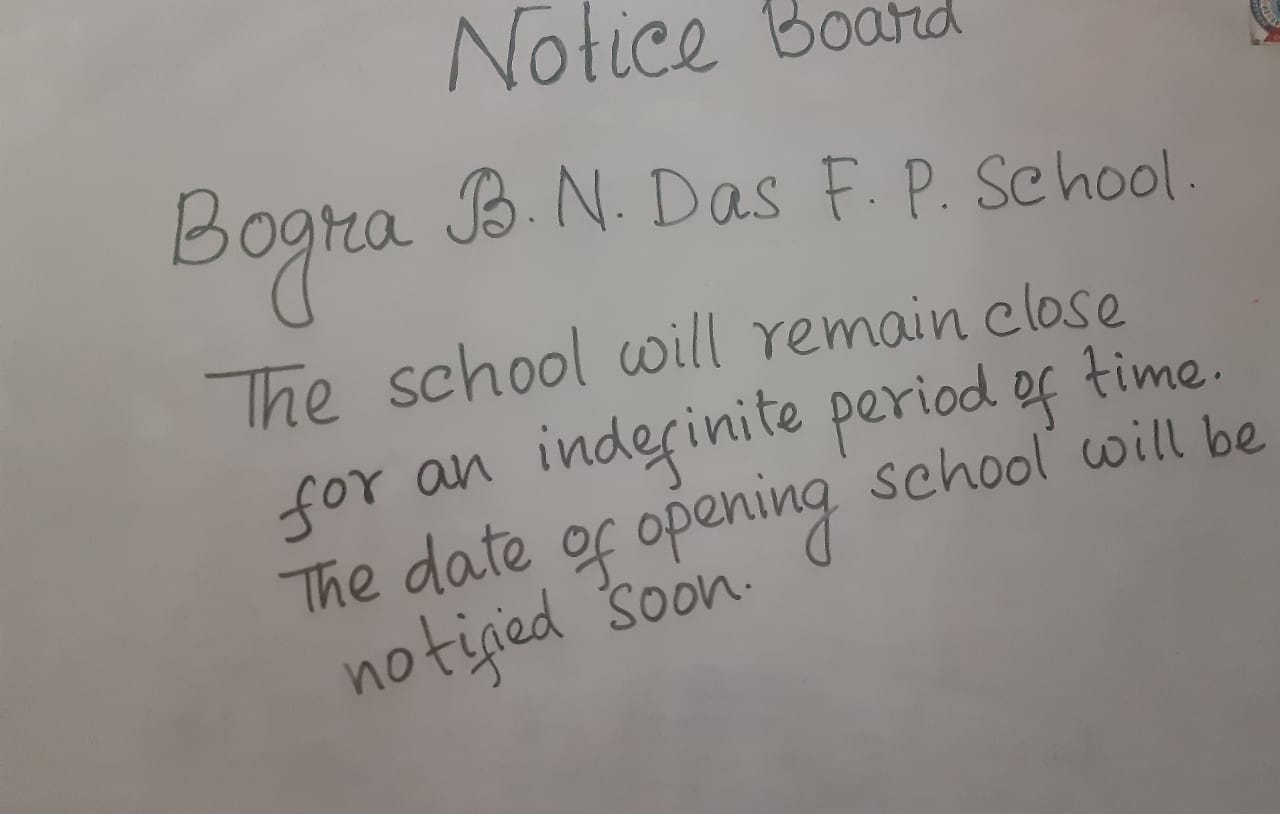 Notice Board
Bogra B. N. Das F. P. School.
The school will remain close
for an indefinite period of time.
The date of opening school will be
notified soon.